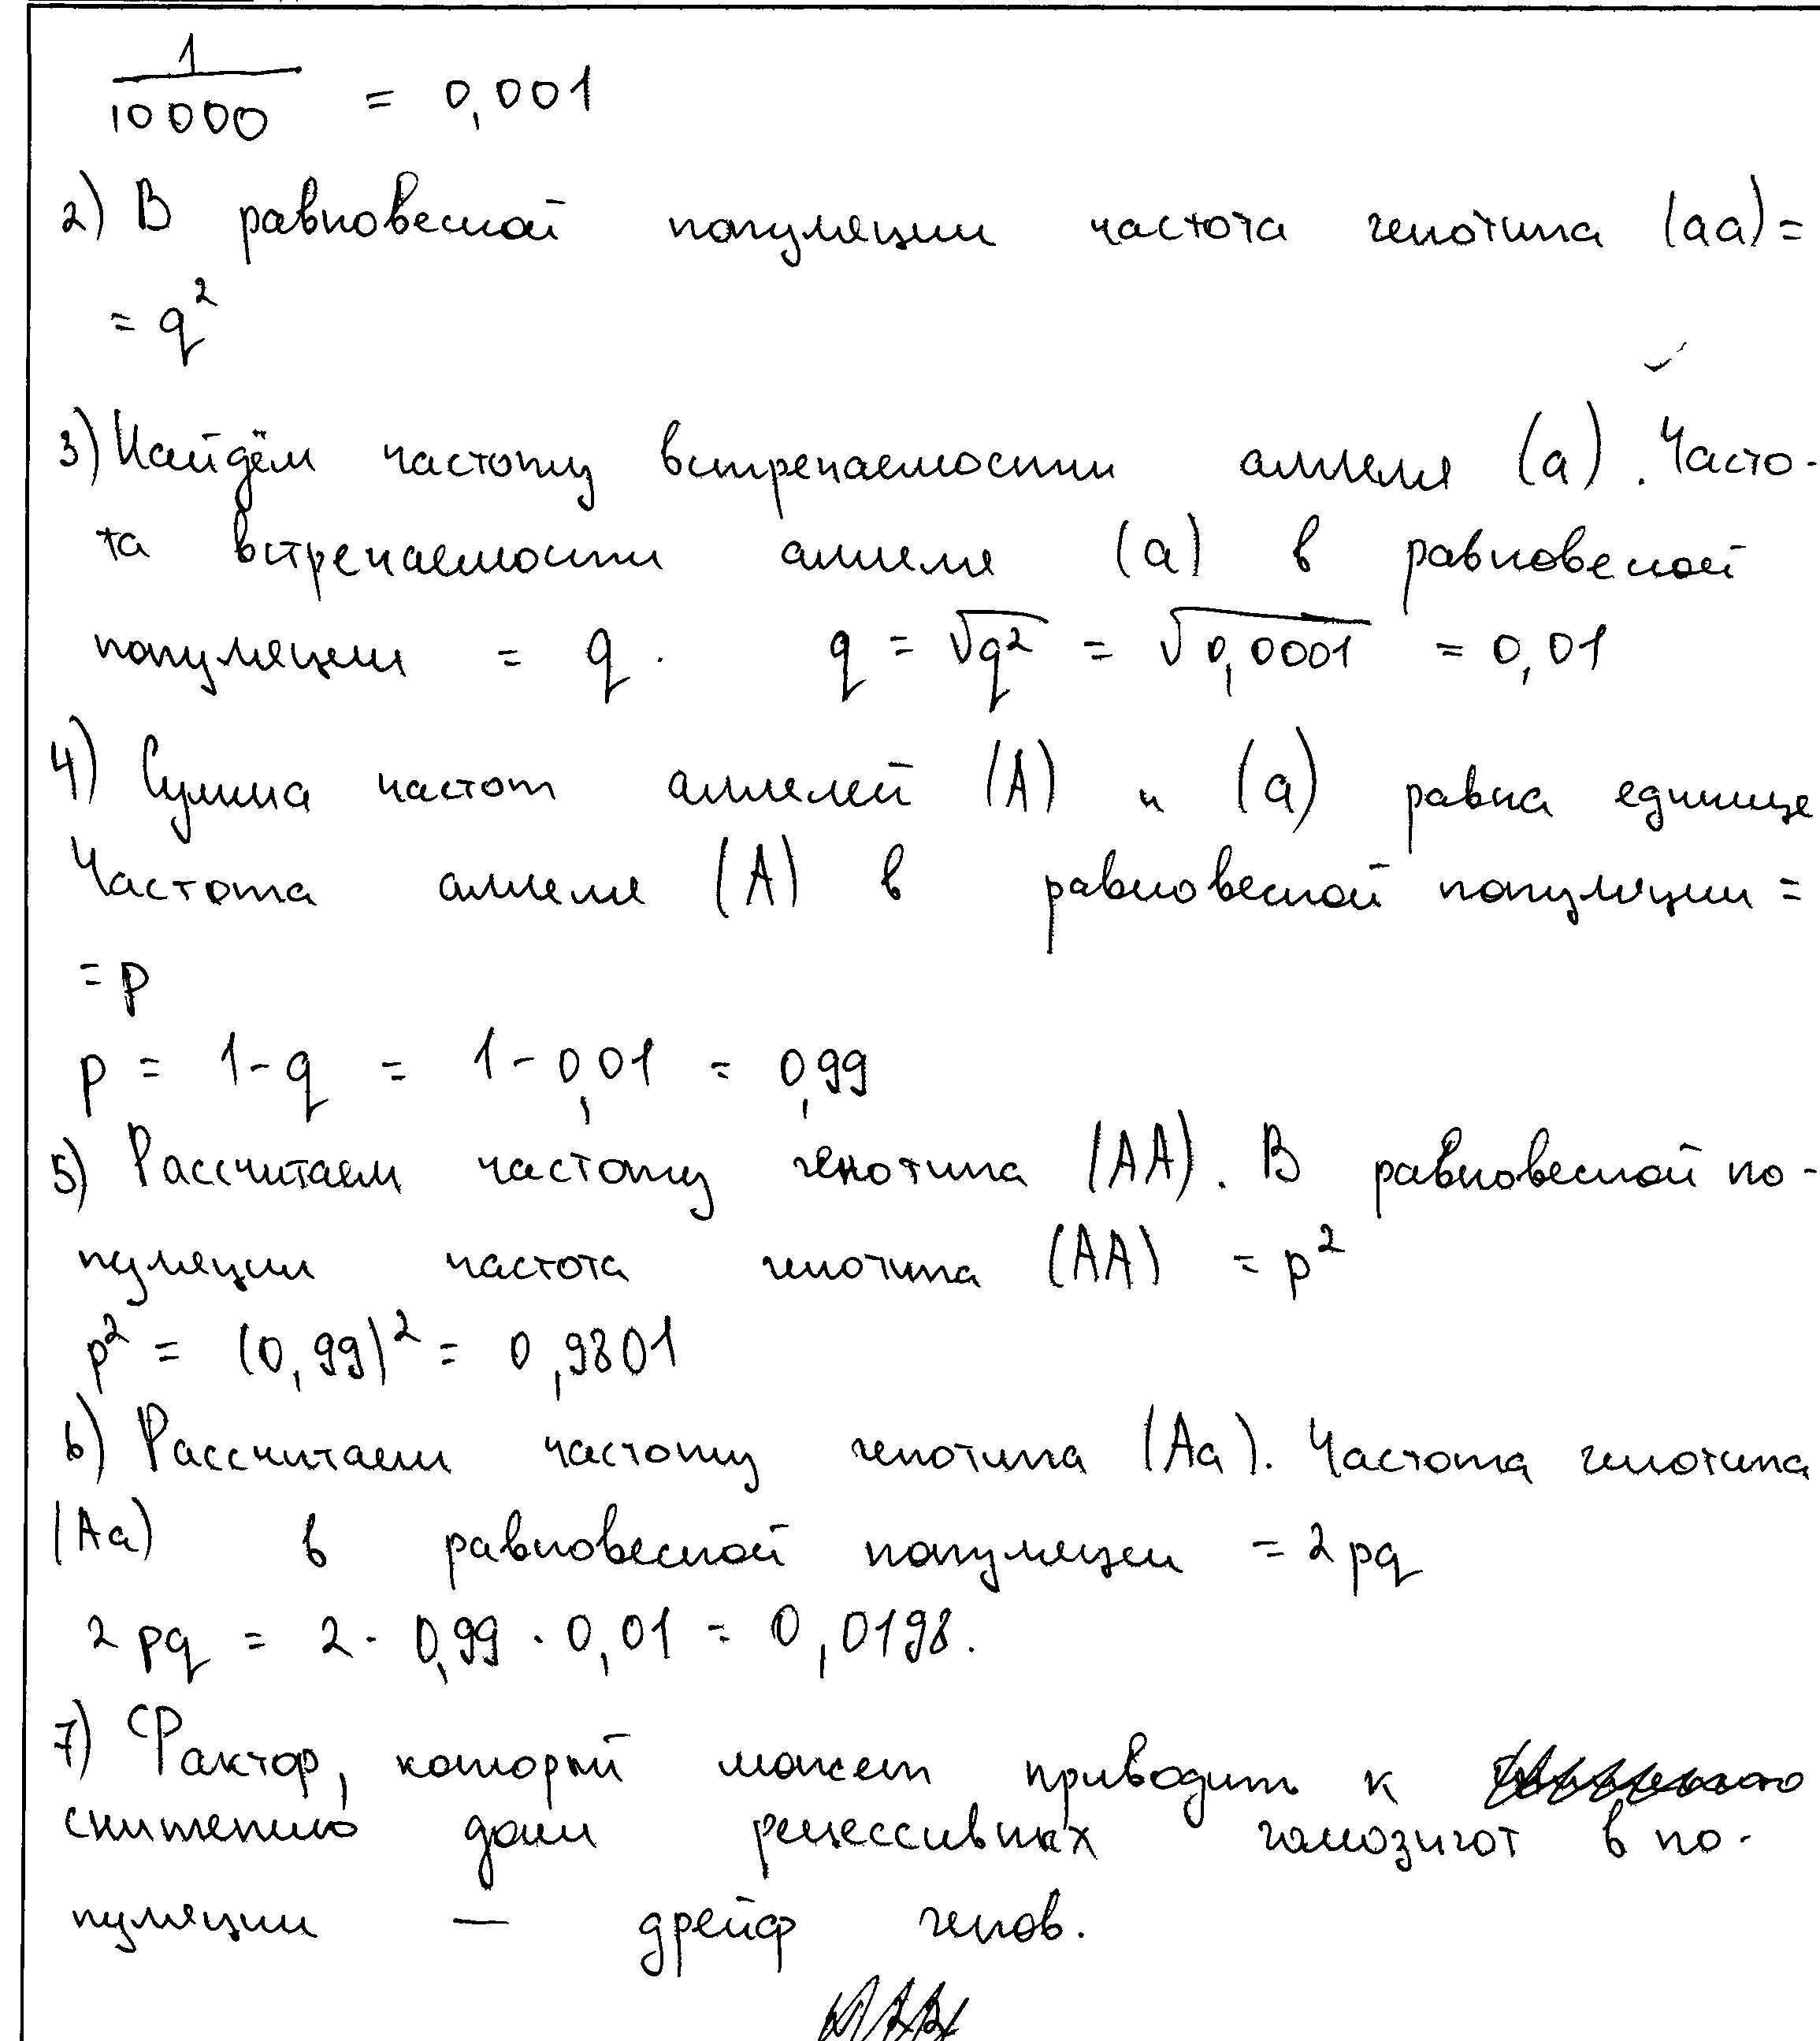 1/10000 = 0,001
2) В равновесной популяции частота генотипа (aa) =
= q²
3) Найдём частоту встречаемости аллеля (a). Часто-
та встречаемости аллеля (a) в равновесной
популяции = q. q = √q² = √0,0001 = 0,01
4) Сумма частот аллелей (A) и (a) равна единице
Частота аллеля (A) в равновесной популяции =
= p
p = 1 - q = 1 - 0,01 = 0,99
5) Рассчитаем частоту генотипа (AA). В равновесной по-
пуляции частота генотипа (AA) = p²
p² = (0,99)² = 0,9801
6) Рассчитаем частоту генотипа (Aa). Частота генотипа
(Aa) в равновесной популяции = 2pq
2pq = 2 · 0,99 · 0,01 = 0,0198.
7) Фактор, который может приводить к
снижению доли рецессивных гомозигот в по-
пуляции — дрейф генов.